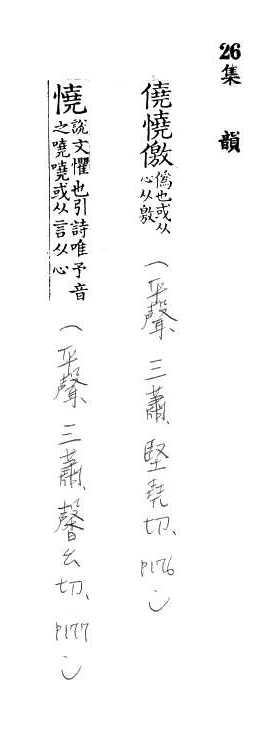 26集 韻
僥憢儌 偽也或从心从敫 (平聲、三蕭、堅堯切、P176)
憢 說文懼也引詩唯予音之嘵嘵或从言从心 (平聲、三蕭、馨幺切、P177)